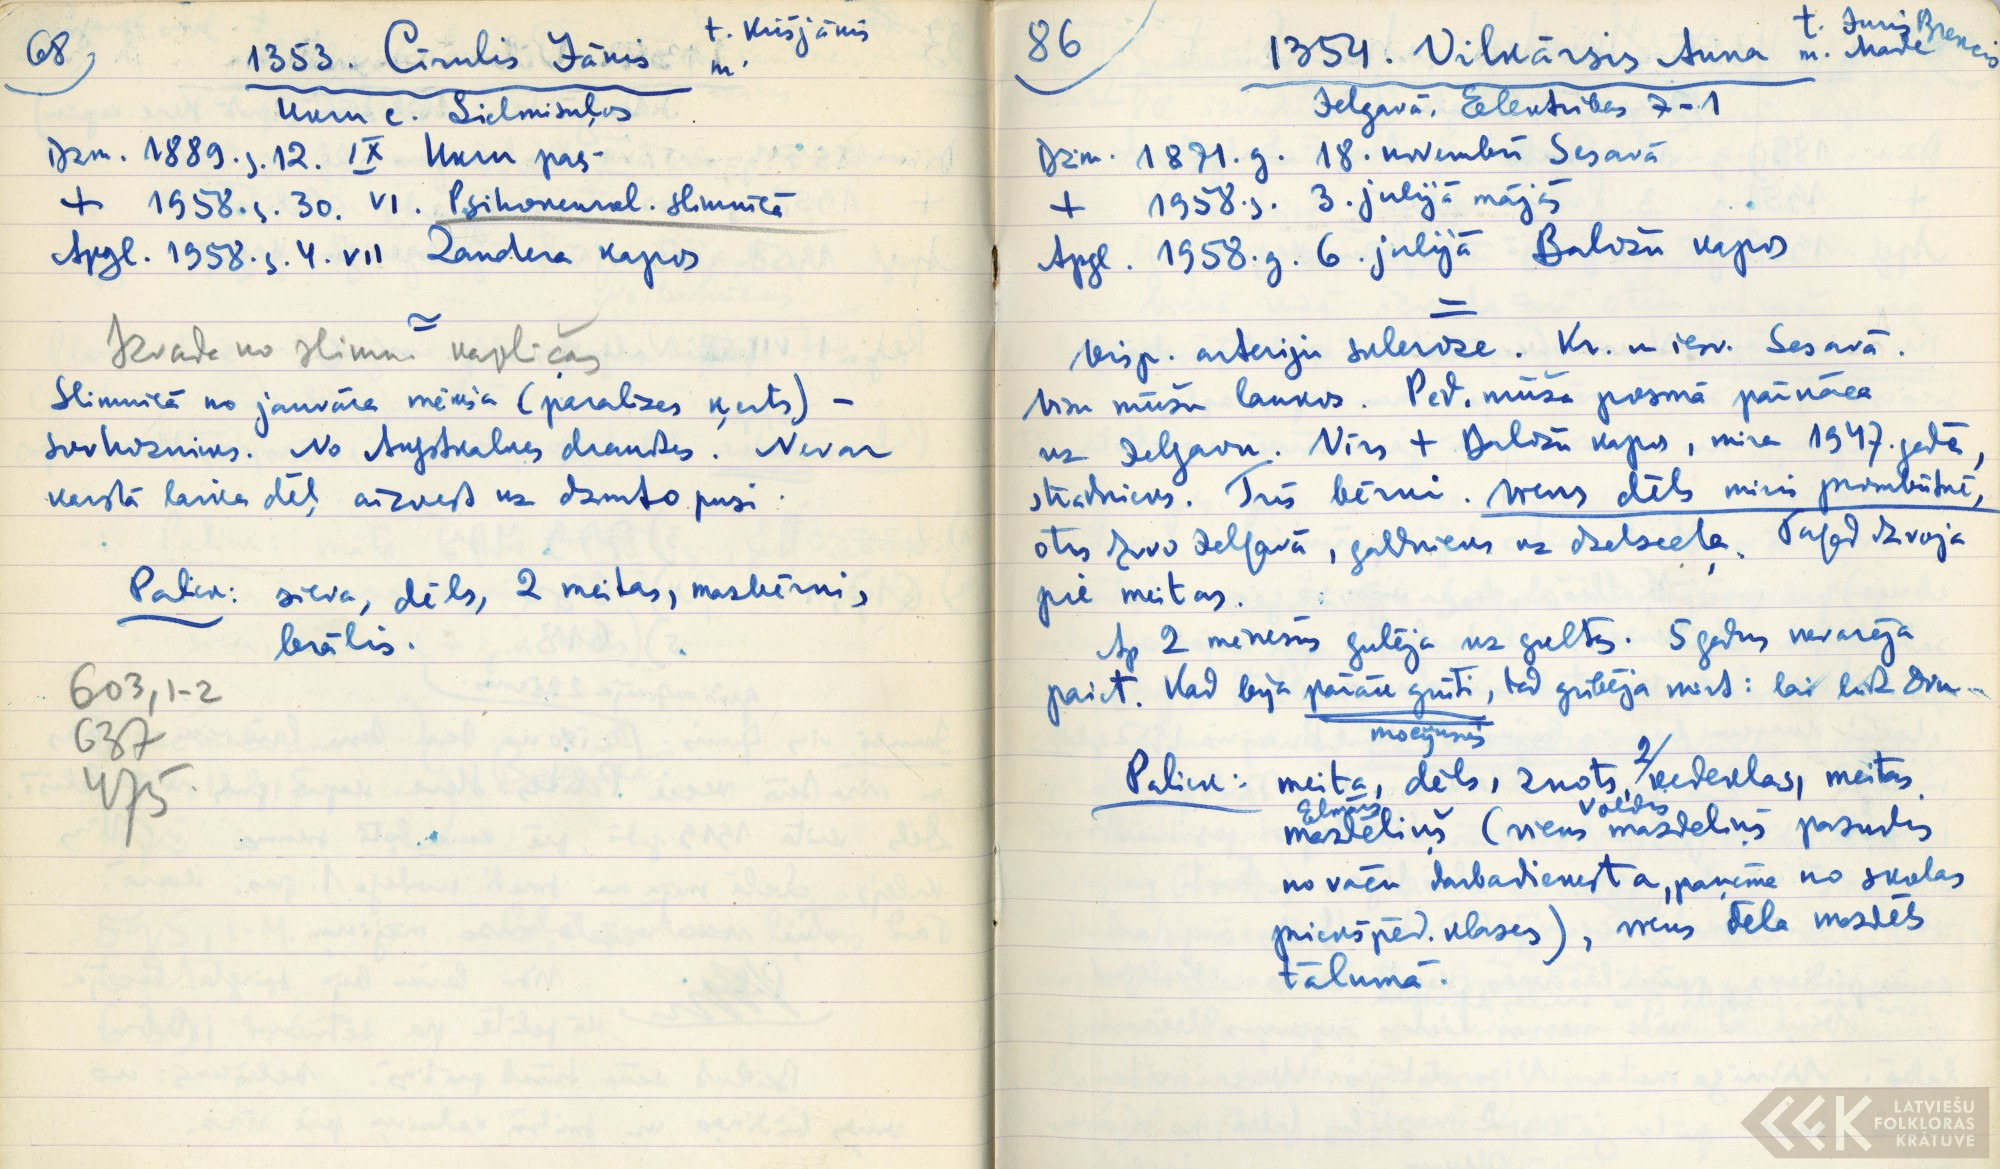 68
1353. Cīrulis Jānis t. Krišjānis
m.
Ukru c. Lielmisiņos
Dzm. 1889.g. 12. IX Ukru pag.
+ 1958.g. 30. VI. Psihoneirol. slimnīcā
Apgl. 1958.g. 4. VII Zandera kapos
=
Izvada no slimn. kapličas
Slimnīcā no janvāra mēneša (paralīzes ķerts) –
sovhoznieks. No Augstkalnes draudzes. Nevar
karstā laika dēļ aizvest uz dzimto pusi.
Paliek: sieva, dēls, 2 meitas, mazbērni,
brālis.
603, 1-2
637
475
86
1354. Vilkārsis Anna t. Juris
m. Made
Jelgavā, Elektrības 7-1
Dzim. 1871.g. 18. novembrī Sesavā
+ 1958.g. 3. jūlijā mājās
Apgl. 1958.g. 6. jūlijā Baložu kapos
=
Visp. arteriju skleroze. Kr. un iesv. Sesavā.
Visu mūžu laukos. Pēd. mūža posmā pārnāca
uz Jelgavu. Vīrs + Baložu kapos, mira 1947. gadā,
strādnieks. Trīs bērni. Viens dēls miris prombūtnē,
otrs dzīvo Jelgavā, galdnieks uz dzelzceļa. Tagad dzīvoja
pie meitas.
Ap 2 mēnešus gulēja uz gultas. 5 gadus nevarēja
paiet. Kad bija pārāk grūti, tad gribēja mirt: lai
mocījusies
Paliek: meita, dēls, znots, 2/ vedeklas, meitas
Elmārs Voldis
mazdēliņš (viens mazdēliņš pazudis
no vācu darbadienesta, paņēma no skolas
priekšpēd. klases), viens dēla mazdēls
tālumā.
LATVIEŠU
FOLKLORAS
KRĀTUVE